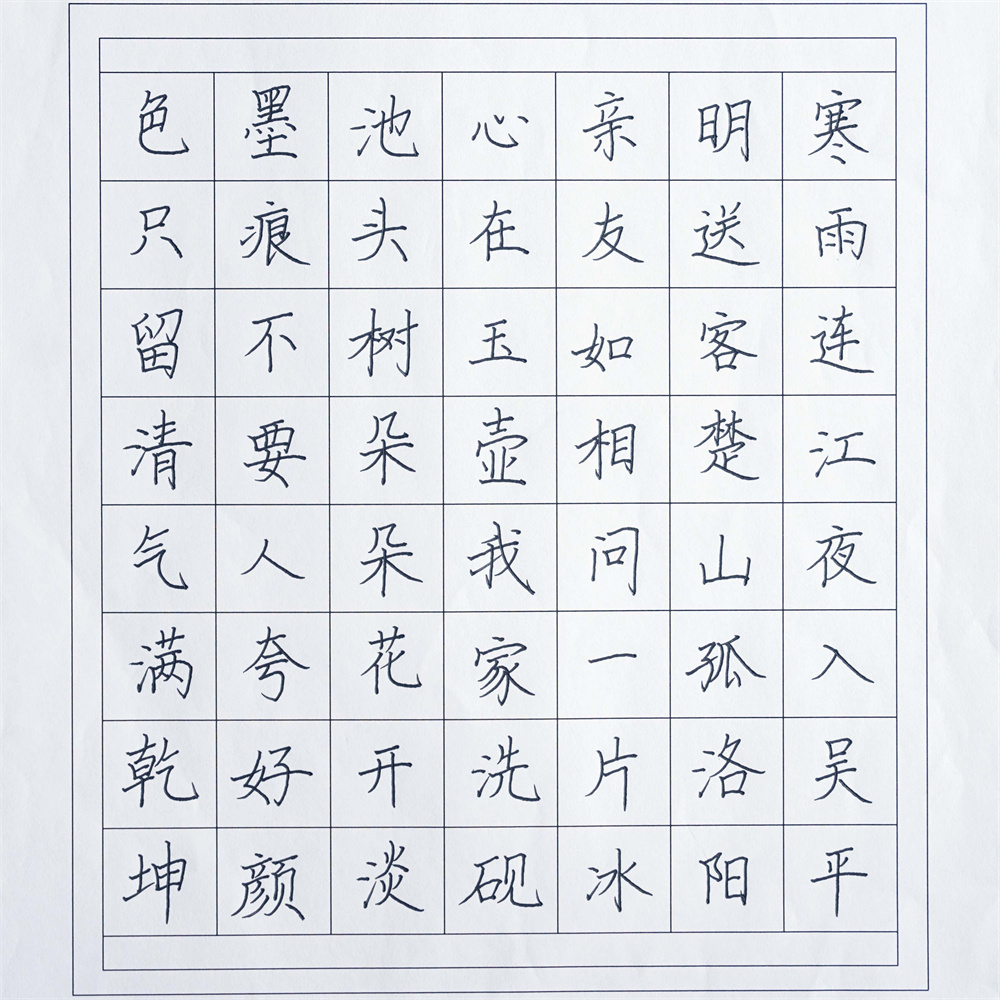 寒雨连江夜入吴平
明送客楚山孤洛阳
亲友如相问一片冰
心在玉壶我家洗砚
池头树朵朵花开淡
墨痕不要人夸好颜
色只留清气满乾坤